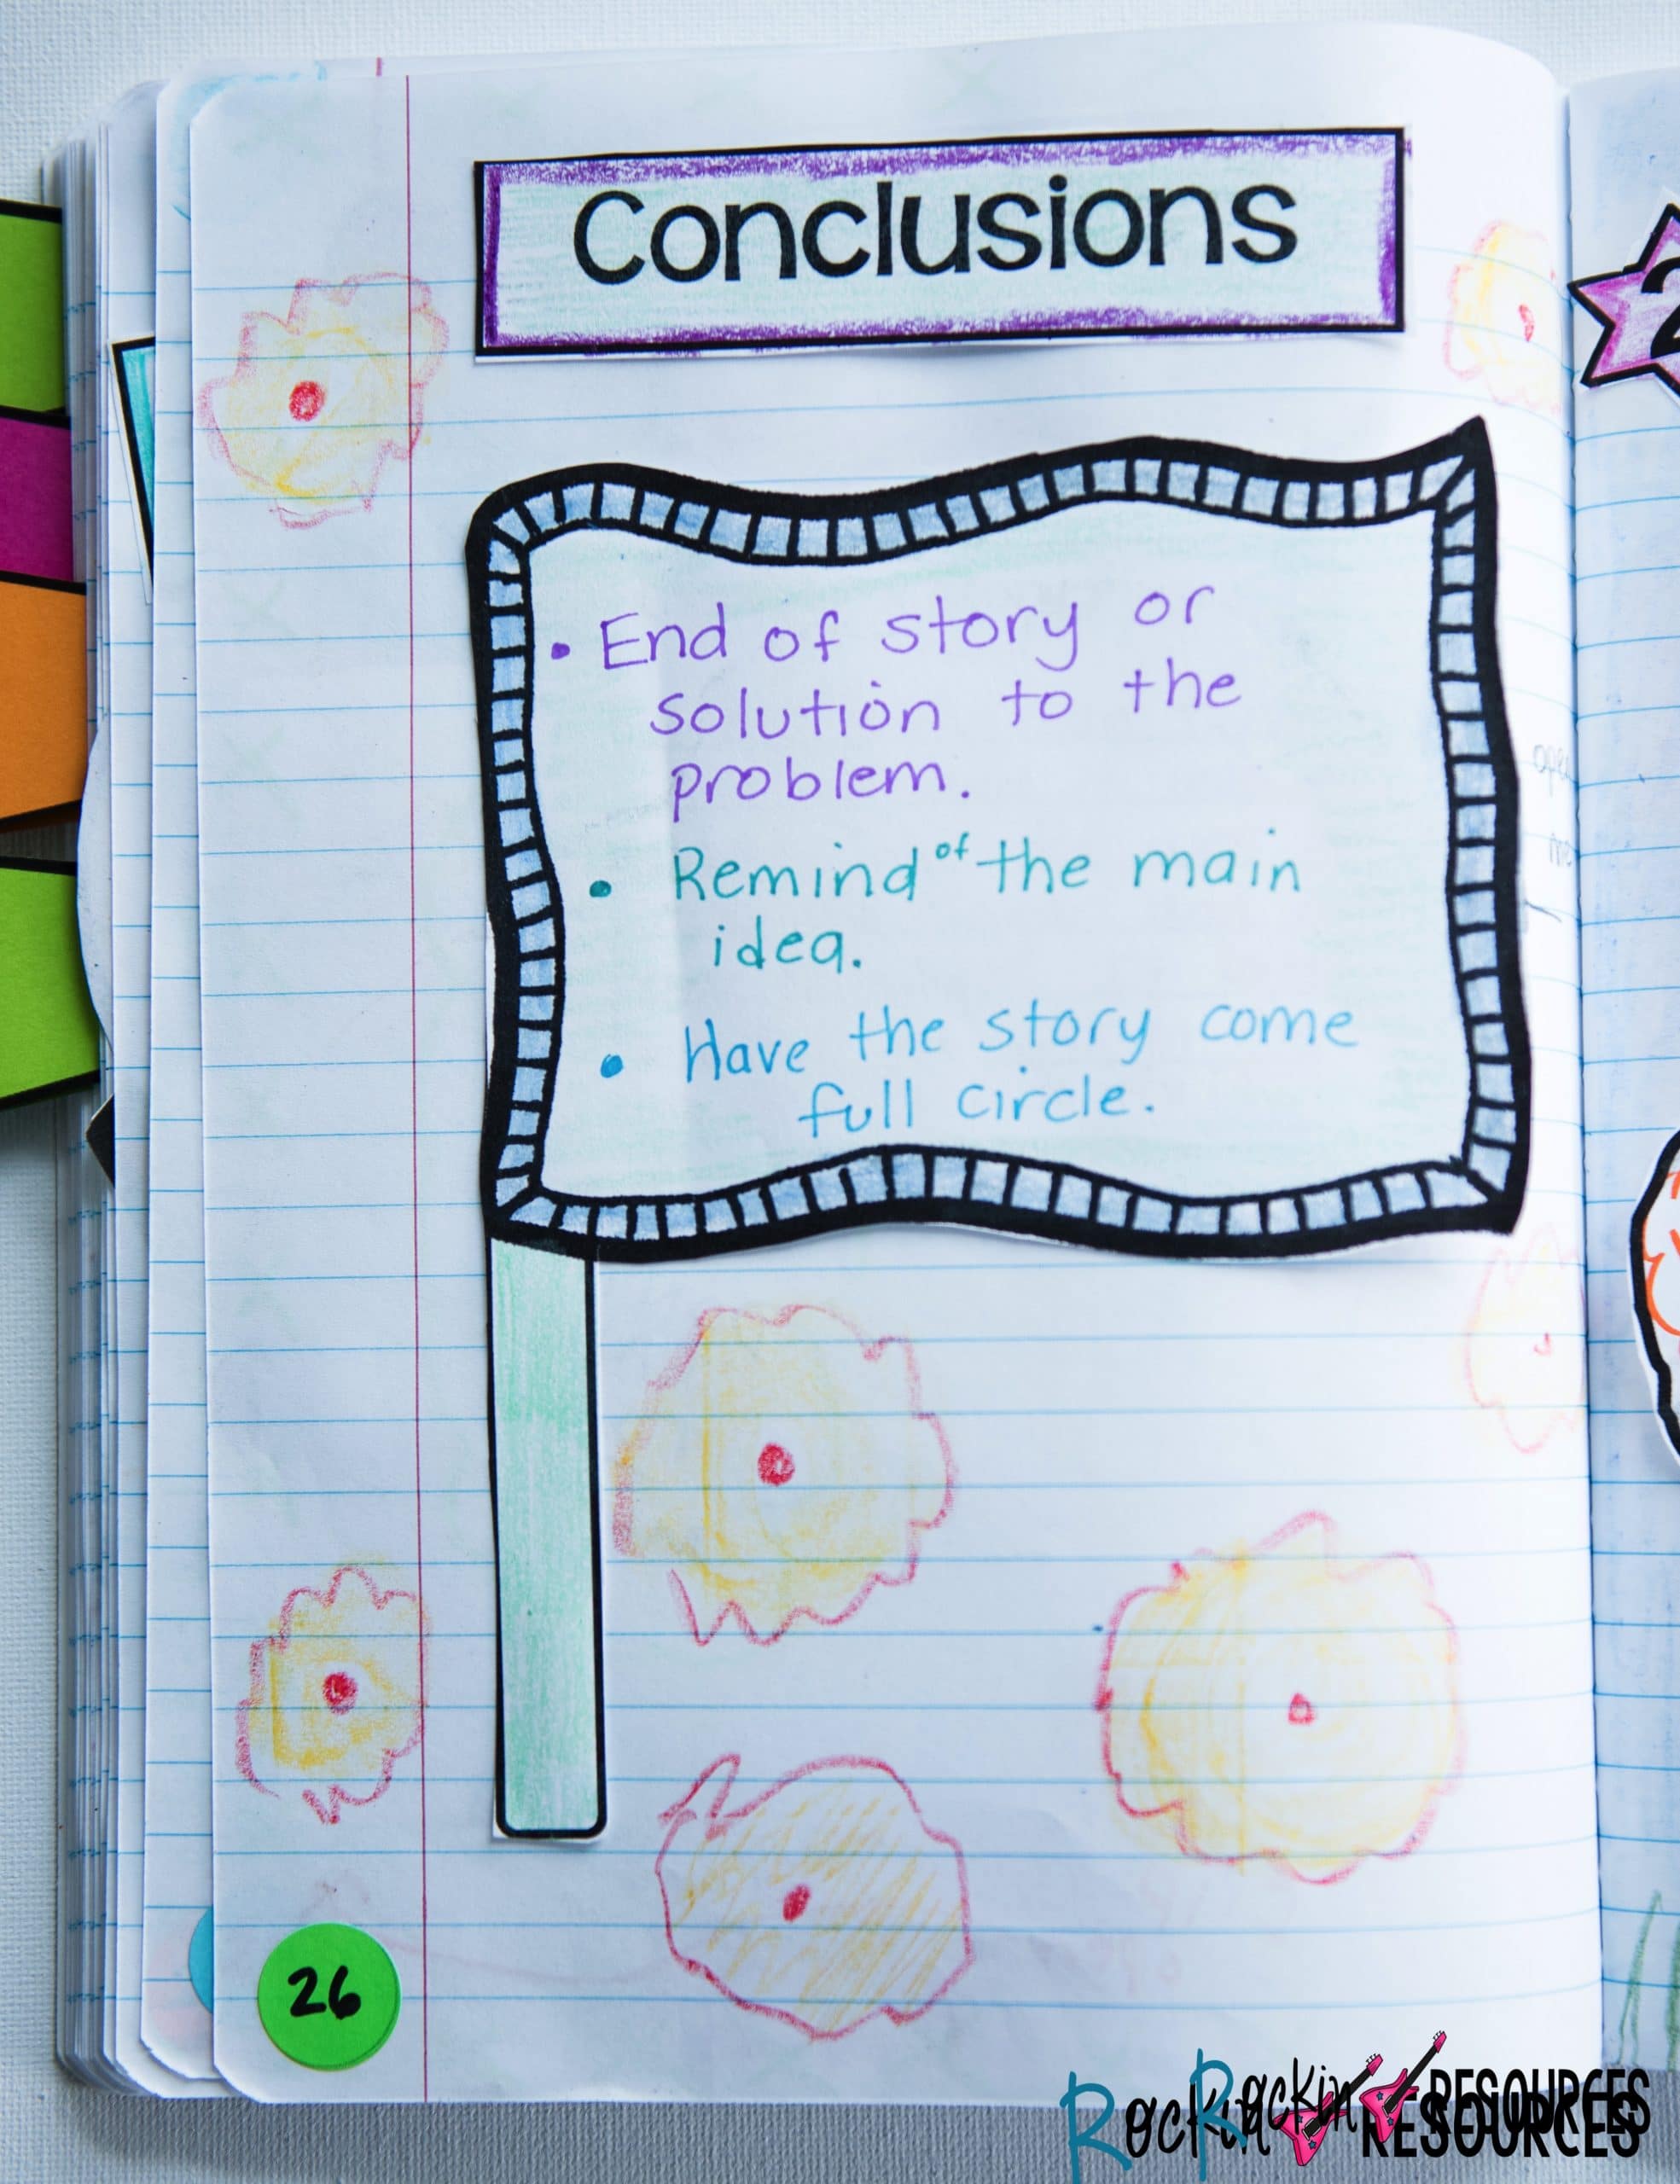 Conclusions
• End of story or
solution to the
problem.
• Remind of the main
idea.
• Have the story come
full circle.
26
Rockin RESOURCES
Rockin RESOURCES